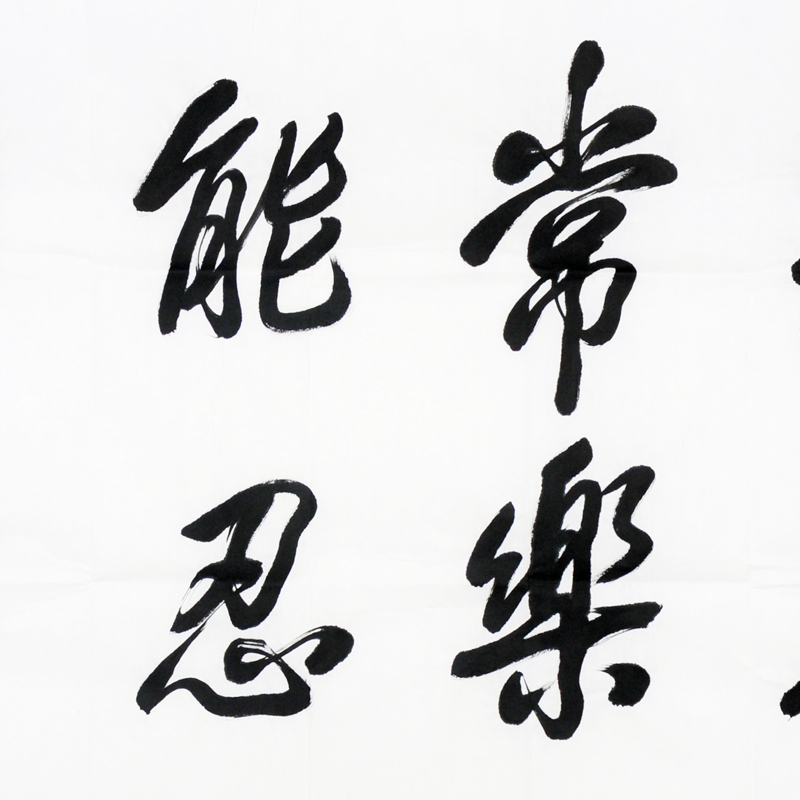 常樂
能忍